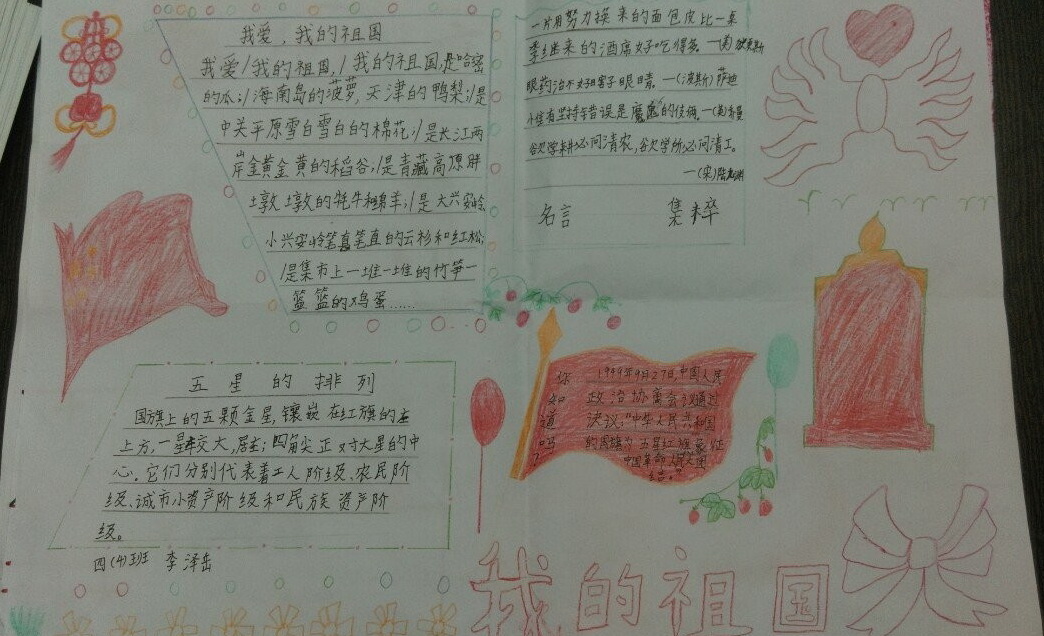 我爱，我的祖国
我爱/我的祖国，/我的祖国，是哈密
的瓜；/海南岛的菠萝，天津的鸭梨；/是
中关平原雪白雪白的棉花；/是长江两
岸金黄金黄的稻谷，/是青藏高原胖
墩墩的牦牛和绵羊；/是大兴安岭
小兴安岭笔直笔直的云杉和红松；
/是集市上一堆一堆的竹笋一
篮篮的鸡蛋……
一片用努力换来的面包皮比一桌
来的酒席好吃得多
眼药治不好瞎子眼睛。—(波斯)萨迪
有坚持错误是魔鬼的伎俩。
欲知学耕必问清农，欲欠学所必问清工。
—(宋)陆
名言 集粹
五星的排列
国旗上的五颗金星，镶嵌在红旗的左
上方，一星较大，居左；四角尖正对大星的中
心。它们分别代表着工人阶级、农民阶
级、城市小资产阶级和民族资产阶
级。
四(4)班 李泽岳
你知道吗？
1949年9月27日，中国人民
政治协商会议通过
决议："中华人民共和国
的国旗为五星红旗，象征
中国革命人民大团
结。"
我的祖国